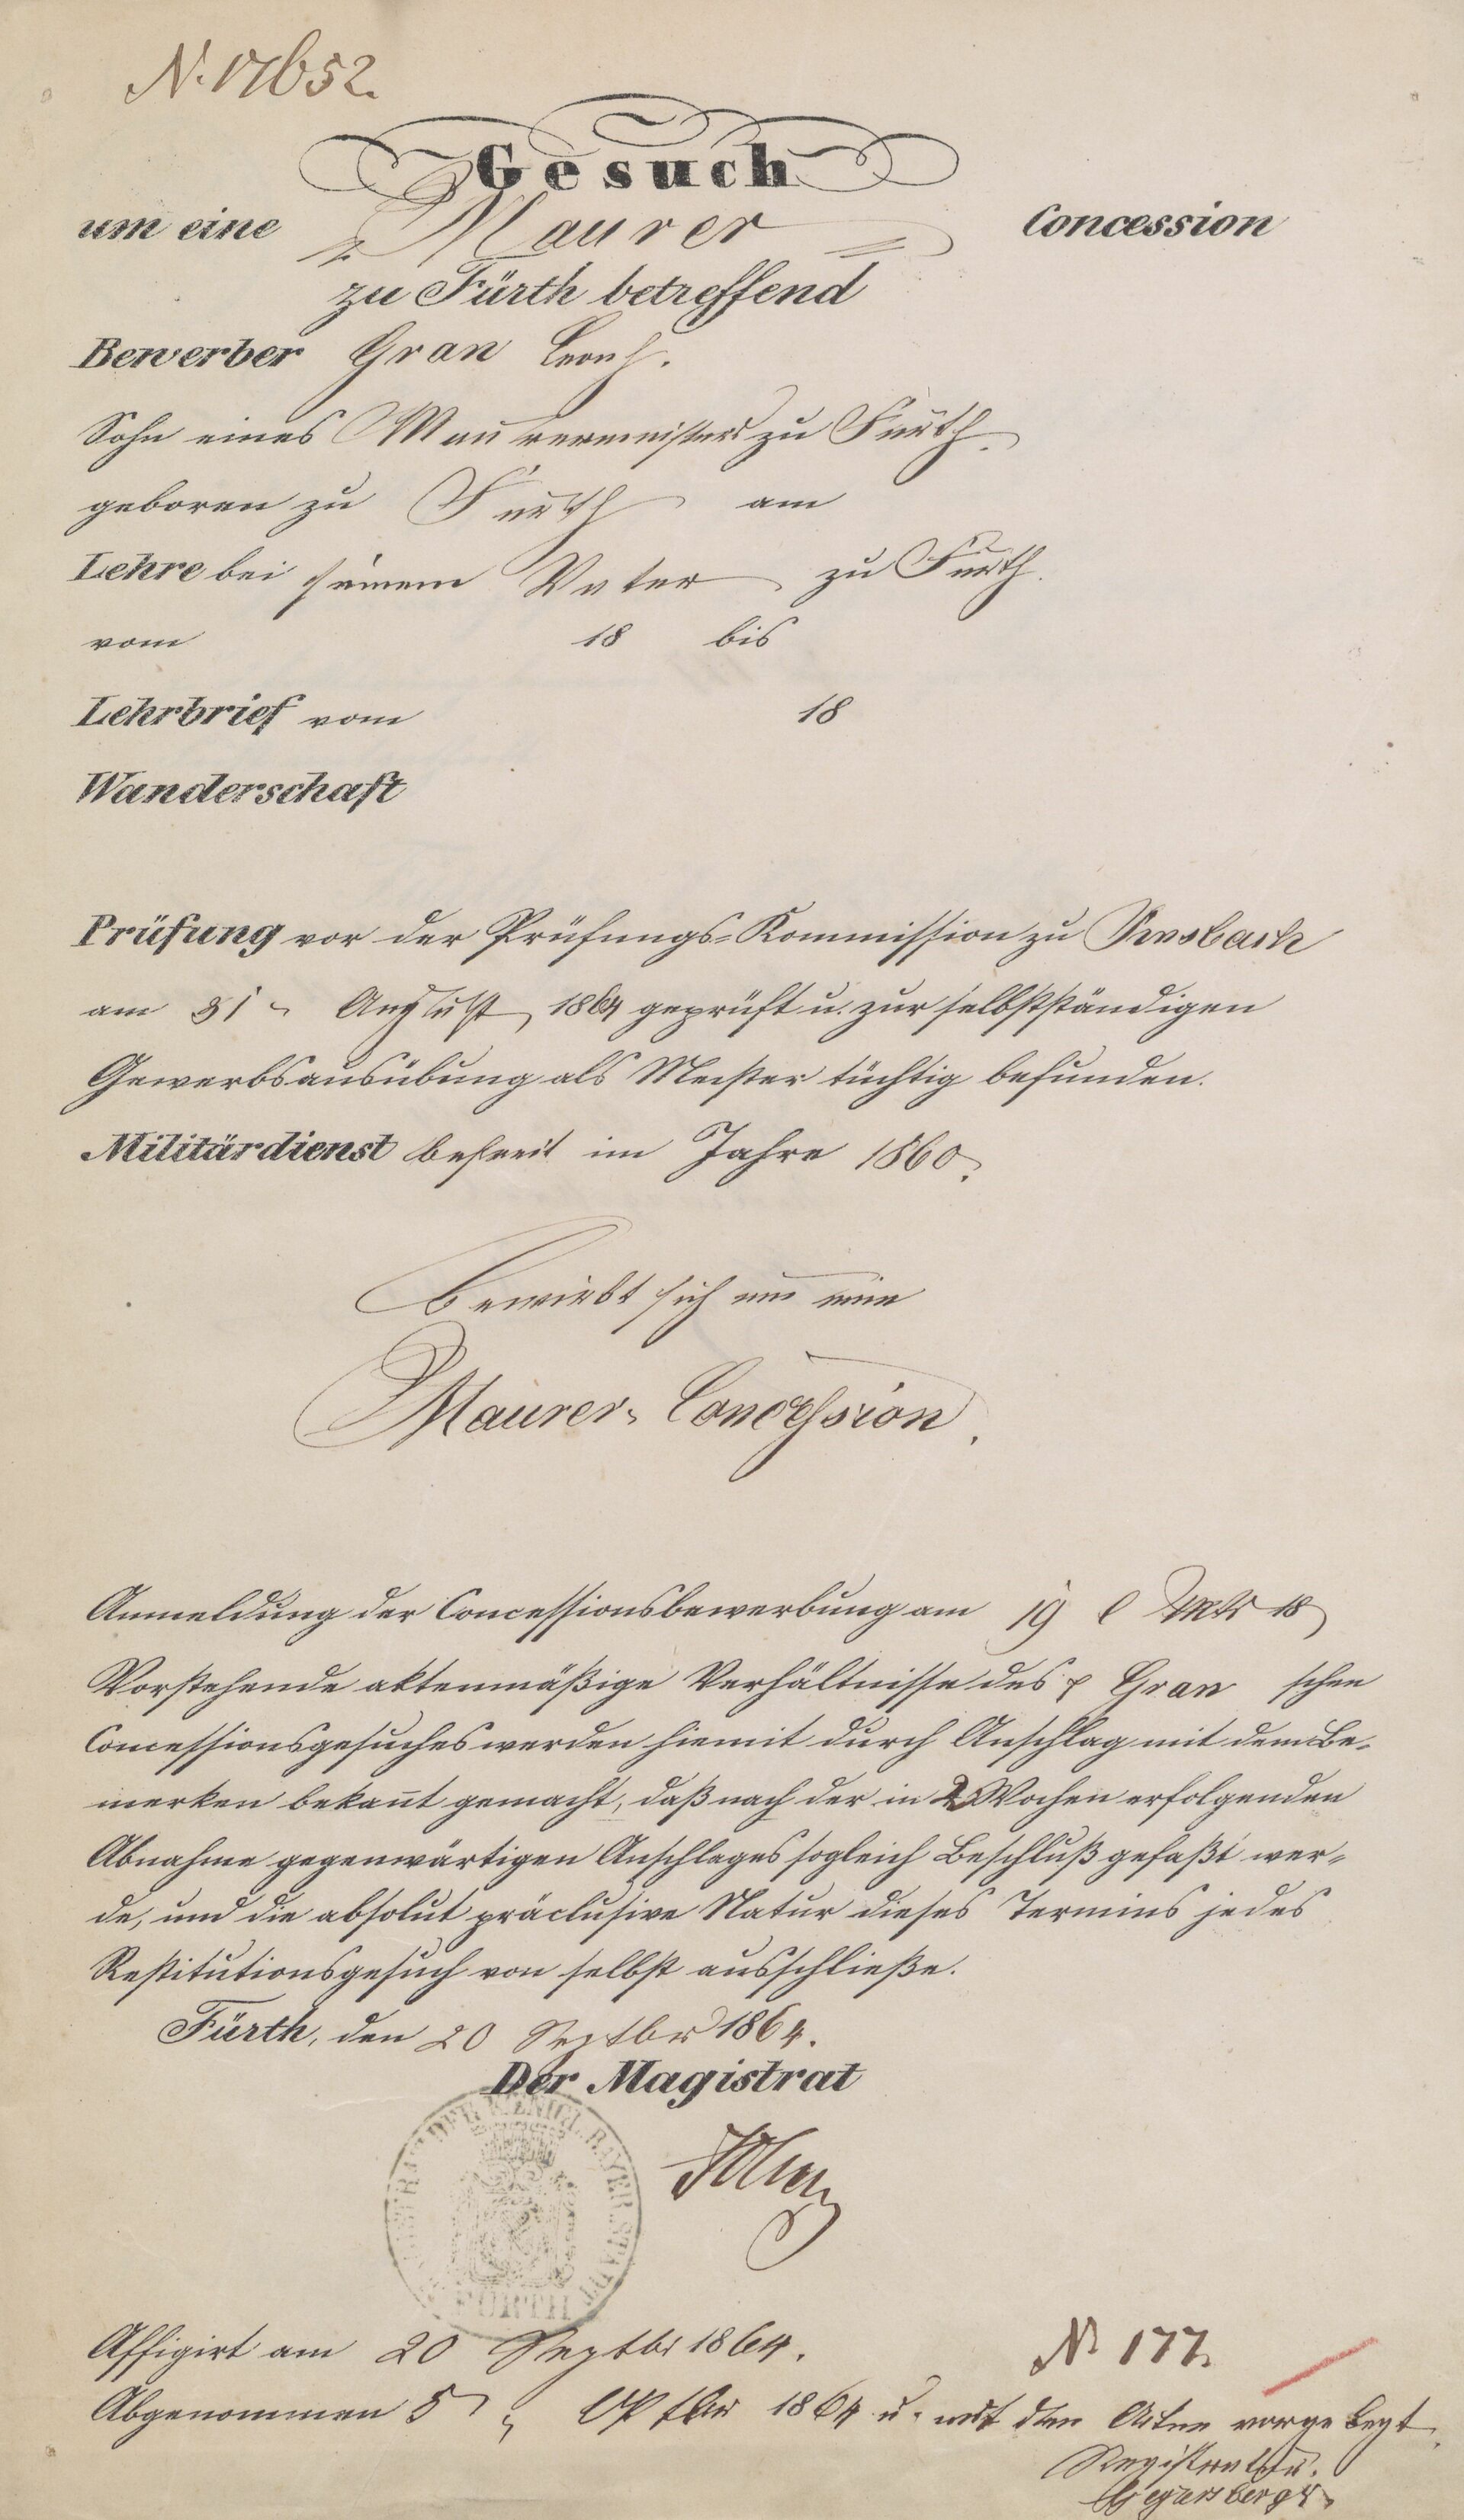 N. 17652.
Gesuch
um eine Maurer Concession
zu Fürth betreffend
Bewerber Gran Leonh.
Sohn eines Maurermeisters zu Fürth.
geboren zu Fürth am
Lehre bei seinem Vater zu Fürth.
vom 18 bis
Lehrbrief vom 18
Wanderschaft
Prüfung vor der Prüfungs-Kommission zu Ansbach
am 31 August 1864 geprüft u. zur selbstständigen
Gewerbsausübung als Meister tüchtig befunden.
Militärdienst befreit im Jahre 1860.
Bewirbt sich um eine
Maurer-Concession.
Anmeldung der Concessionsbewerbung am 19 l Mts 18
Vorstehende aktenmäßige Verhältnisse des Gran schen
Concessionsgesuches werden hiemit durch Anschlag mit dem Be-
merken bekannt gemacht, daß nach der in 2 Wochen erfolgenden
Abnahme gegenwärtigen Anschlages sogleich Beschluß gefaßt wer-
de, und die absolut präclusive Natur dieses Termins jedes
Restitutionsgesuch von selbst ausschließe.
Fürth, den 20 Septbr 1864.
Der Magistrat
MAGISTRAT DER KOENIGL. BAYER. STADT
FÜRTH
Affigirt am 20 Septbr 1864.
N 177.
Abgenommen 5 Oktbr 1864 u. mit den Akten vorgelegt.
Registratur.